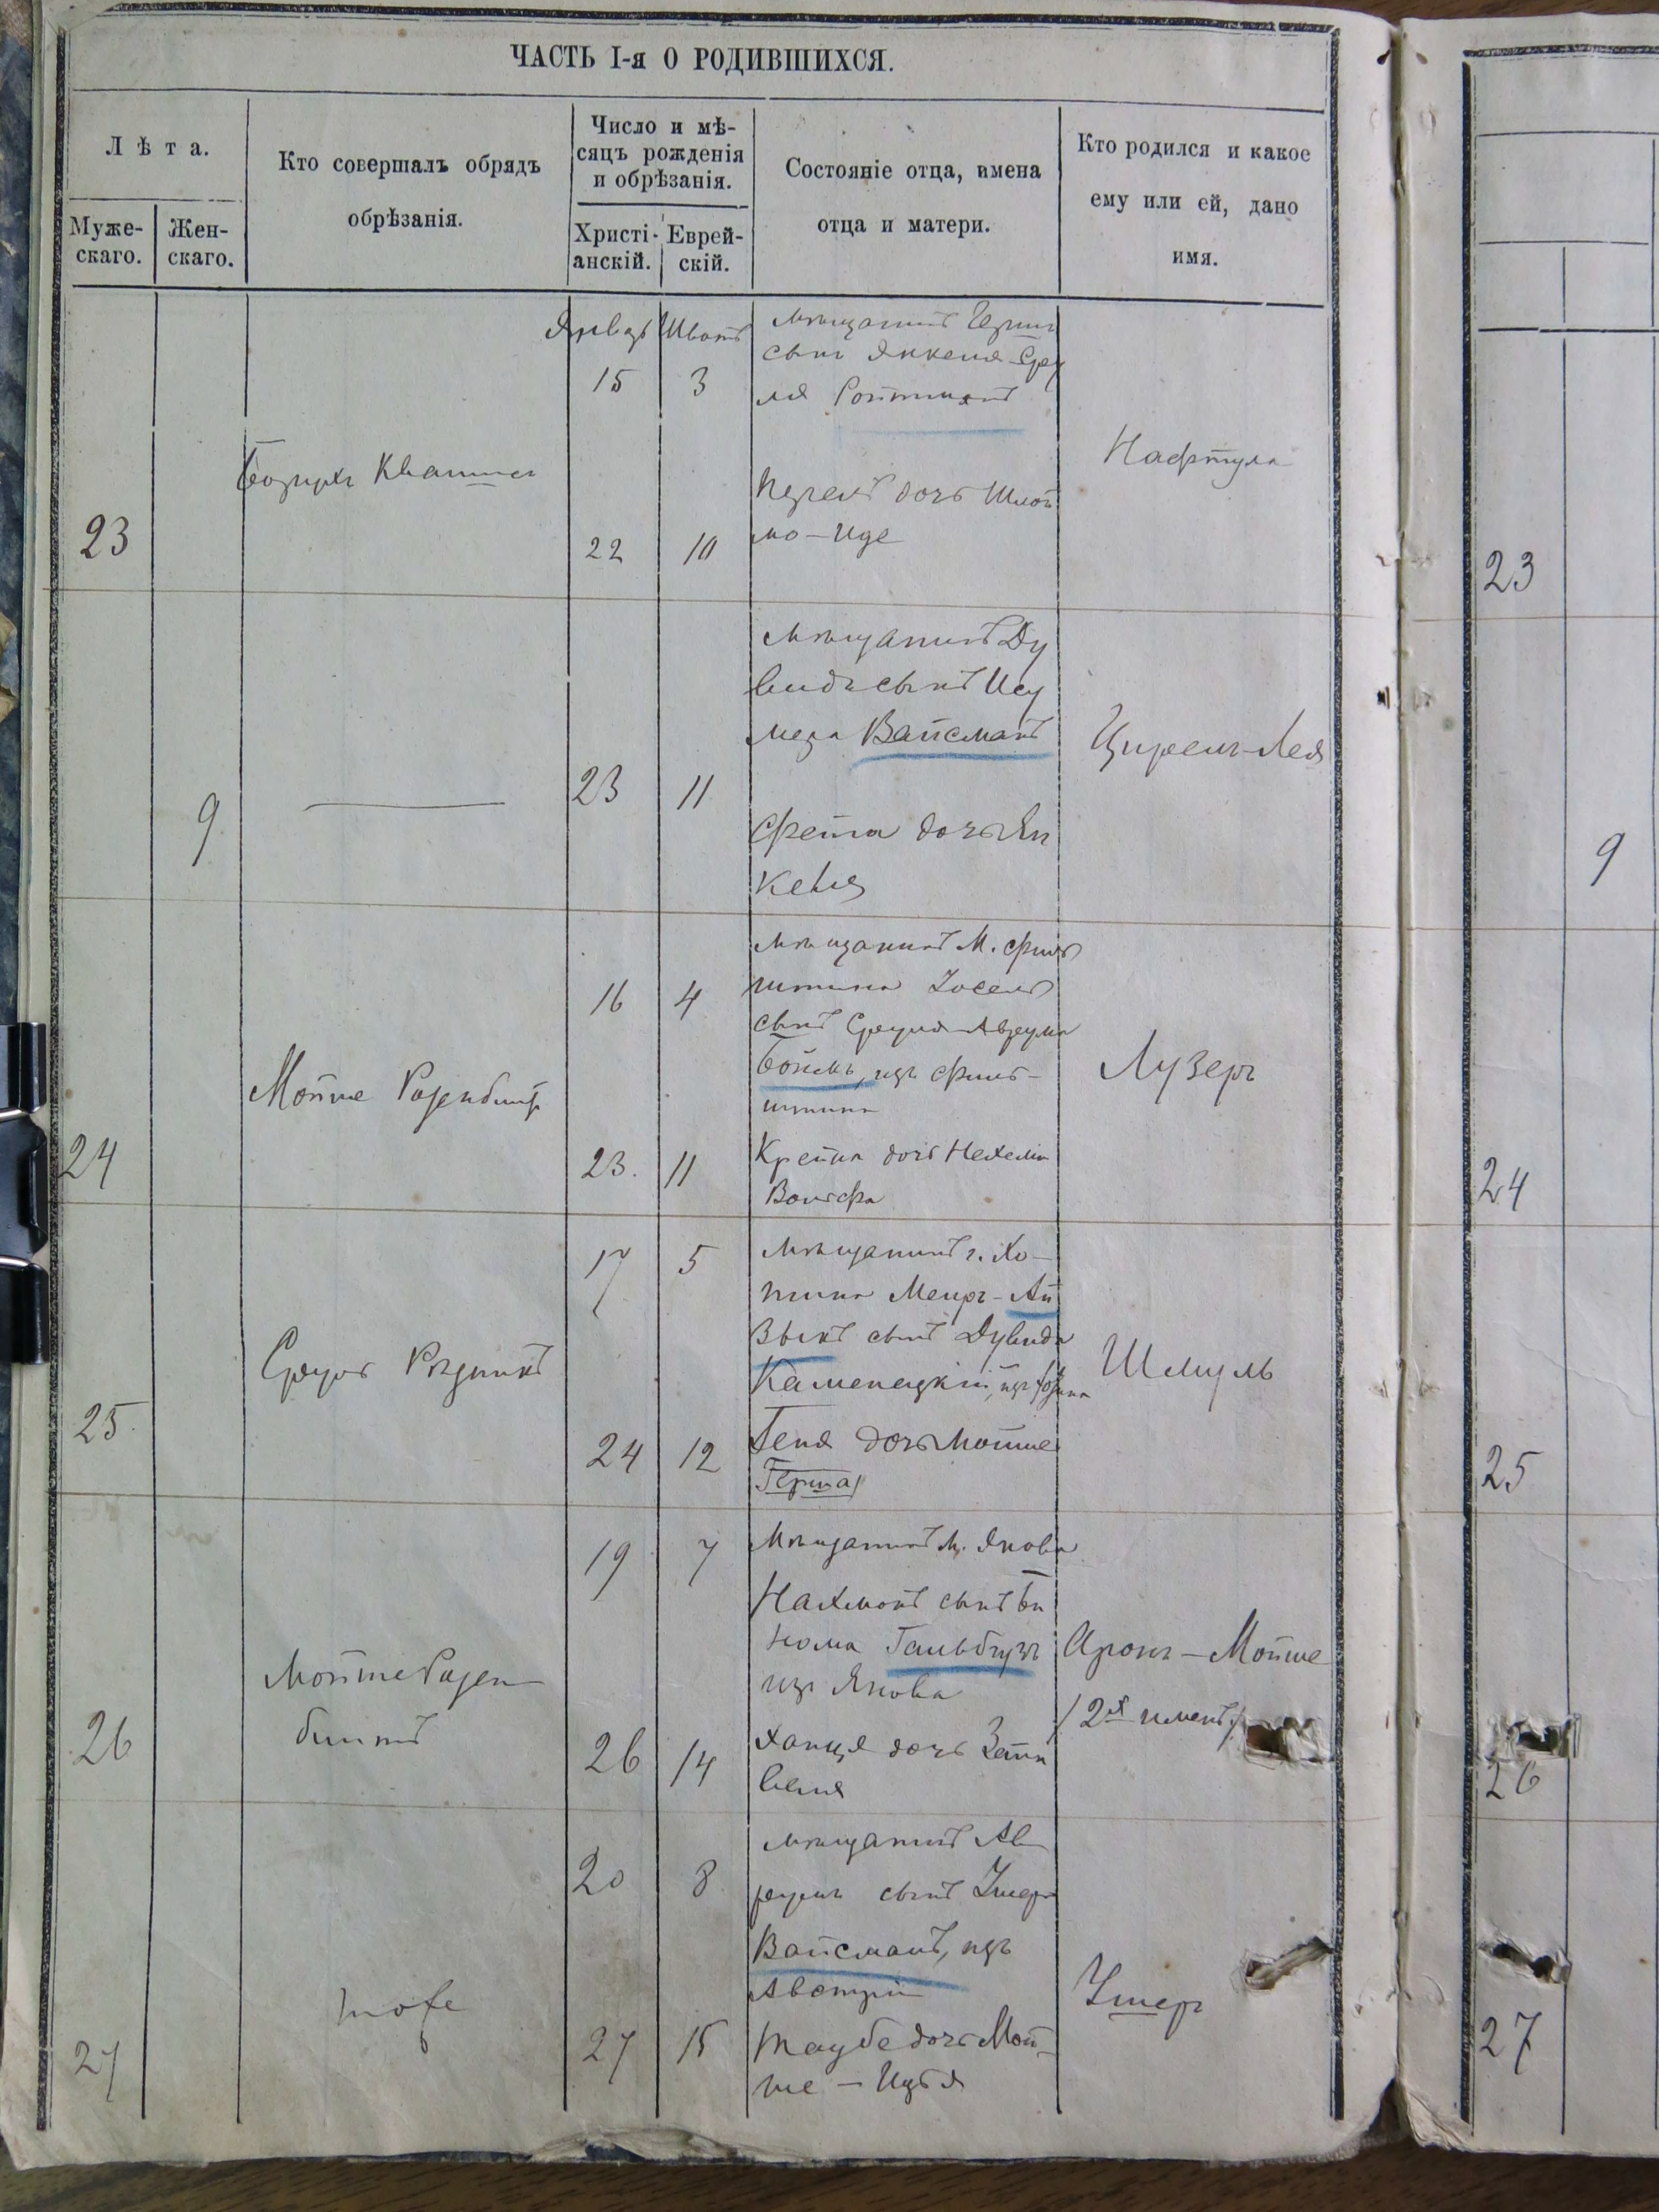 ЧАСТЬ I-я О РОДИВШИХСЯ.
Лѣта.
Муже-
скаго.
Жен-
скаго.
Кто совершалъ обрядъ
обрѣзанія.
Число и мѣ-
сяцъ рожденія
и обрѣзанія.
Христі-
анскій.
Еврей-
скій.
Состояніе отца, имена
отца и матери.
Кто родился и какое
ему или ей, дано
имя.
23
Борухъ
Шватъ
15 3
22 10
мѣщанинъ Герш
сынъ Янкеля-Сру
ля Ройтманъ
дочь Шлой
мо-
Нафтула
9
23 11
мѣщанинъ Ду
видъ сынъ
Вайсманъ
Фейга дочь Ян
келя
Цирель-Лея
24
Мойше Розенблитъ
16 4
23. 11
мѣщанинъ М. Фель
штина Іосель
сынъ Сруля-Аврума
Боймъ, изъ Фель-
штина
Крейна дочь Нехемія
Вольфа
Лузеръ
25
Сруль Рѣзникъ
17 5
24 12
мѣщанинъ г. Хо-
тина Меиръ-Ай
зыкъ сынъ Дувида
Каменецкій, изъ Хотина
Геня дочь Мойше
Герша
Шмуль
26
Мойше Розен-
блитъ
19 7
26 14
Мѣщанинъ м. Янова
Нахманъ сынъ Бе
нома Гольбурт
изъ Янова
Ханця дочь Зейн
веля
Аронъ-Мойше
/2хъ именъ/
27
тоже
20 8
27 15
мѣщанинъ Ав-
румъ сынъ Ушера
Вайсманъ, изъ
Австріи
Таубе дочь Мой-
ше - Ицья
Ушеръ
23
9
24
25
26
27